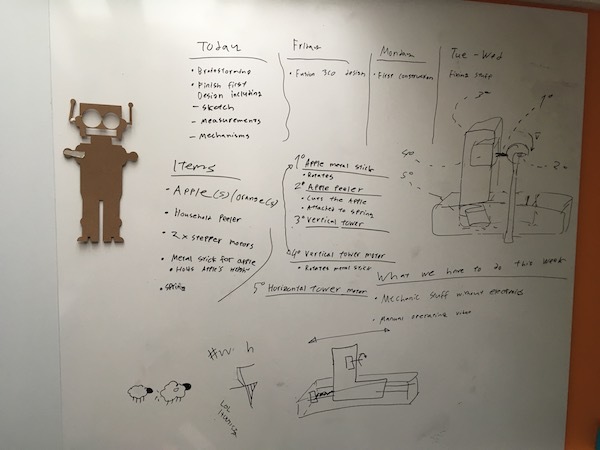 Today
• Brainstorming
• Finish first
Design including
– Sketch
– Measurements
– Mechanisms
Friday
• Fusion 360 design
Monday
• First construction
Tue - Wed
Fining stuff
Items
• Apple(s)/orange(s)
• Household Peeler
• 2x stepper motors
• Metal stick for apple
• Holds Apple's
• spring
1° Apple metal stick
• Rotates
2° Apple peeler
• Cuts the Apple
• Attached to spring
3° Vertical tower
4° Vertical tower motor
• Rotates metal stick
5° Horizontal tower motor
3°
1°
4°
5°
2°
What we have to do this week
• Mechanic stuff without electronic
• Manual operating video
LOL